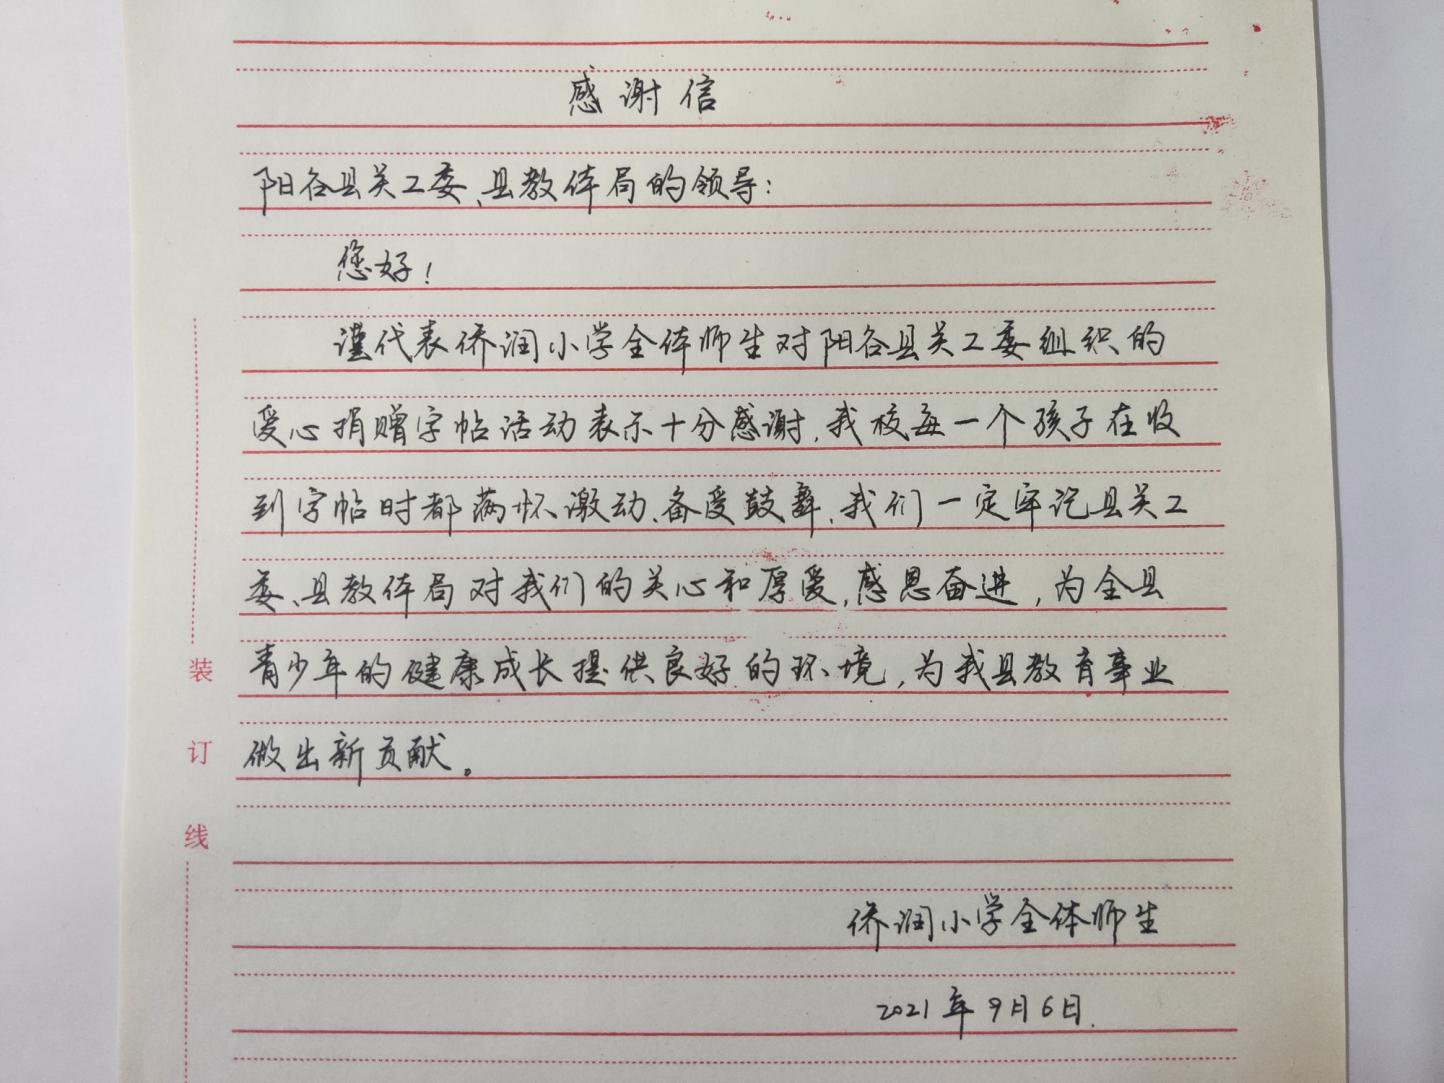 感谢信
阳谷县关工委、县教体局的领导：
您好！
谨代表侨润小学全体师生对阳谷县关工委组织的
爱心捐赠字帖活动表示十分感谢，我校每一个孩子在收
到字帖时都满怀激动、备受鼓舞，我们一定牢记县关工
委、县教体局对我们的关心和厚爱，感恩奋进，为全县
青少年的健康成长提供良好的环境，为我县教育事业
做出新贡献。
侨润小学全体师生
2021年9月6日.
装
订
线